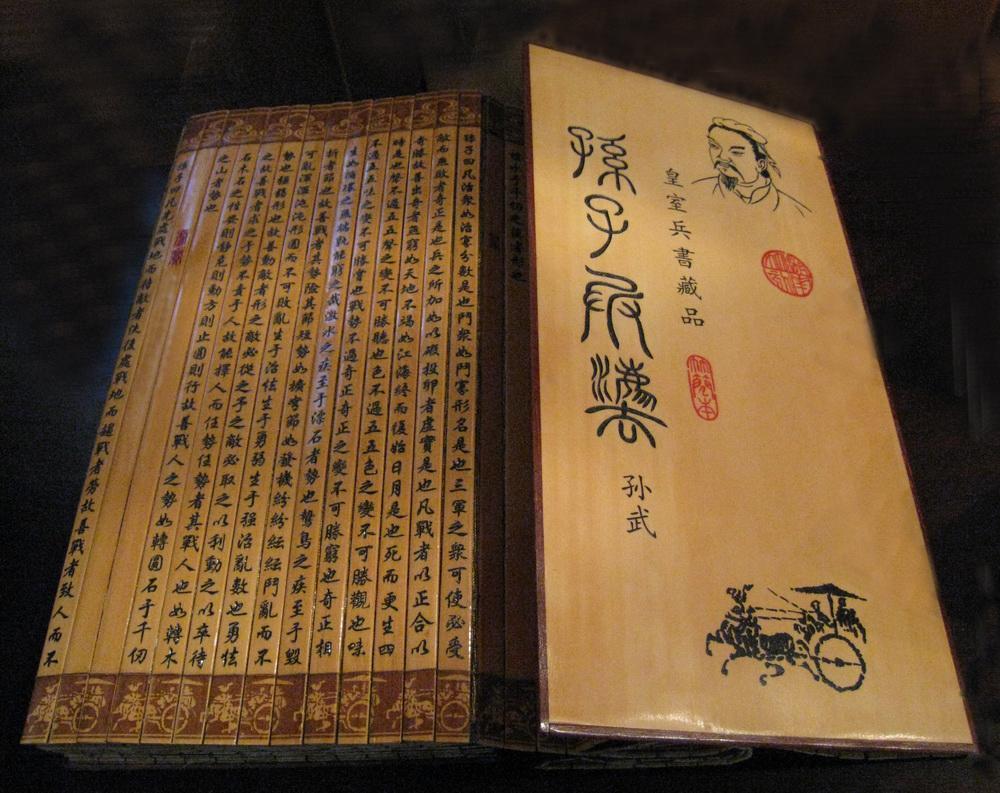 孫子兵法
皇室兵書藏品
竹簡本
孙武
孫子曰凡治衆如治寡分數是也鬥衆如鬥寡形名是也三軍之衆可使必受
敵而無敗者奇正是也兵之所加如以碬投卵者虛實是也凡戰者以正合以
奇勝故善出奇者無窮如天地不竭如江海終而復始日月是也死而更生四
時是也聲不過五五聲之變不可勝聽也色不過五五色之變不可勝觀也味
不過五五味之變不可勝嘗也戰勢不過奇正奇正之變不可勝窮也奇正相
生如循環之無端孰能窮之哉激水之疾至于漂石者勢也鷙鳥之疾至于毀
折者節也故善戰者其勢險其節短勢如擴弩節如發機紛紛紜紜鬥亂而不
可亂渾渾沌沌形圓而不可敗亂生于治怯生于勇弱生于强治亂數也勇怯
勢也强弱形也故善動敵者形之敵必從之予之敵必取之以利動之以卒待
之故善戰者求之于勢不責于人故能擇人而任勢任勢者其戰人也如轉木
石木石之性安則靜危則動方則止圓則行故善戰人之勢如轉圓石于千仞
之山者勢也
孫子曰凡先處戰地而待敵者佚後處戰地而趨戰者勞故善戰者致人而不